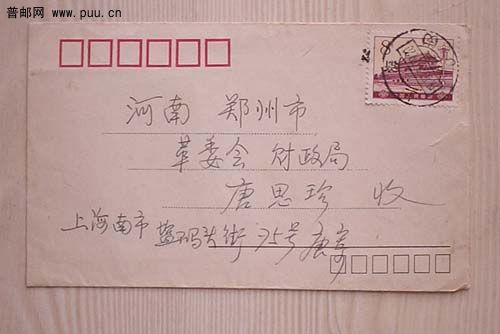 普邮网
www.puu.cn
8
河南 郑州市
革委会 财政局
唐思珍 收
上海南市 盐码头街 75号 唐寄